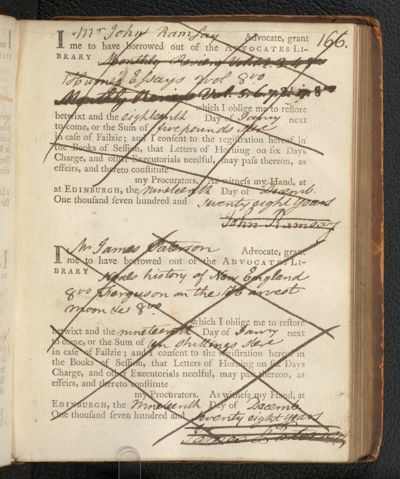 166.
I Mr John Ramsay Advocate, grant
me to have borrowed out of the ADVOCATES LI-
BRARY Monthly Review Vol.
Hume's Essays Vol 8vo
Monthly Review Vol. 5. 6. 7. 8vo
which I oblige me to restore
betwixt and the eighteenth Day of Janry next
to come, or the Sum of five pounds Ster
in case of Failzie; and I consent to the registration hereof in
the Books of Session, that Letters of Horning on six Days
Charge, and other Executorials needful, may pass thereon, as
effeirs, and thereto constitute
my Procurators. As witness my Hand, at
at EDINBURGH, the nineteenth Day of Decemb.
One thousand seven hundred and seventy eight years
John Ramsay
I Mr James Paterson Advocate, grant
me to have borrowed out of the ADVOCATES LI-
BRARY history of New England
8vo Ferguson on the harvest
moon &c 8vo
which I oblige me to restore
betwixt and the nineteenth Day of Janry next
to come, or the Sum of ten shillings Ster
in case of Failzie; and I consent to the registration hereof in
the Books of Session, that Letters of Horning on six Days
Charge, and other Executorials needful, may pass thereon, as
effeirs, and thereto constitute
my Procurators. As witness my Hand, at
EDINBURGH, the Nineteenth Day of Decemb
One thousand seven hundred and seventy eight years
James Paterson